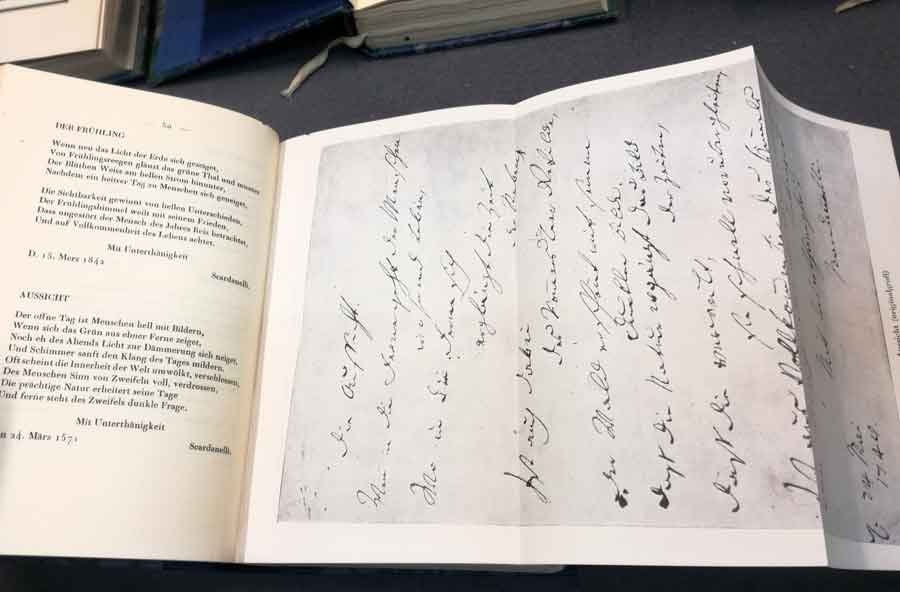 DER FRÜHLING
Wenn neu das Licht der Erde sich gezeiget,
Von Frühlingsregen glänzt das grüne Thal und munter
Der Blüthen Weiss am hellen Strom hinunter,
Nachdem ein heitrer Tag zu Menschen sich geneiget.
Die Sichtbarkeit gewinnt von hellen Unterschieden,
Der Frühlingshimmel weilt mit seinem Frieden,
Dass ungestört der Mensch des Jahres Reiz betrachtet,
Und auf Vollkommenheit des Lebens achtet.
Mit Unterthänigkeit
D. 15. Merz 1842
Scardanelli.
AUSSICHT
Der offne Tag ist Menschen hell mit Bildern,
Wenn sich das Grün aus ebner Ferne zeiget,
Noch eh des Abends Licht zur Dämmerung sich neiget,
Und Schimmer sanft den Klang des Tages mildern.
Oft scheint die Innerheit der Welt umwölkt, verschlossen,
Des Menschen Sinn von Zweifeln voll, verdrossen,
Die prächtige Natur erheitert seine Tage
Und ferne steht des Zweifels dunkle Frage.
Mit Unterthänigkeit
n 24. März 1671
Scardanelli.
Die Aussicht.
Wenn in die Ferne geht der Menschen
wohnend Leben,
Wo in die Ferne sich
erglänzt die Zeit
der Reben,
Ist auch dabei
des Sommers leer Gefilde,
Der Wald erscheint mit seinem
dunklen Bilde.
Daß die Natur ergänzt das Bild
der Zeiten,
Daß die verweilt,
sie schnell vorübergleiten,
Vollkommenheit des Himmels
24 Mai
1748.